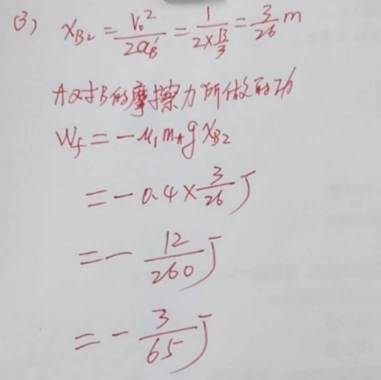 (3) x_{B2} = \frac{V_0^2}{2a_B'} = \frac{1}{2×\frac{13}{3}} = \frac{3}{26} m
A对B的摩擦力所做的功
W_f = -μ_1 m_A g x_{B2}
= -0.4×\frac{3}{26} J
= -\frac{12}{260} J
= -\frac{3}{65} J